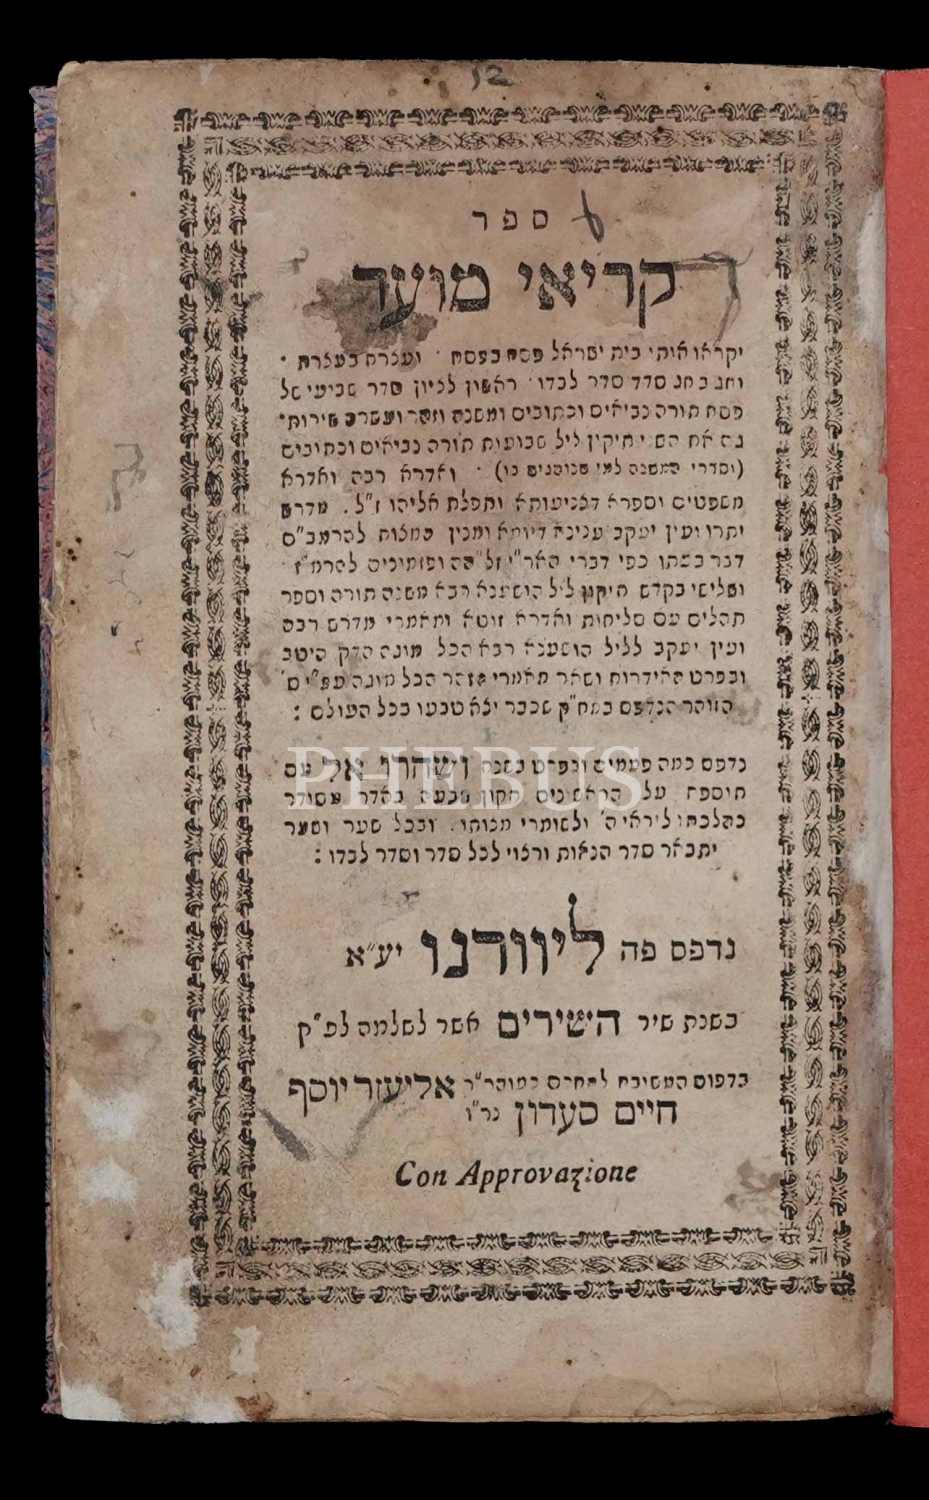 12
ספר
קריאי מועד
יקראו אותי בית ישראל פסח בפסח ועצרת בעצרת
וחג בחג סדר סדר לבדו ראשון לציון סדר שביעי של
פסח תורה נביאים וכתובים ומשנה וזהר ועשרב שירות
גם את השני תיקון ליל שבועות תורה נביאים וכתובים
(וסדרי המשנה למי שנוהגים בו) ואדרא רבה ואדרא
משפטים וספרא דצניעותא ותפלת אליהו ז"ל. מדרש
יתרו ועין יעקב ומנין המצות להרמב"ם
דבר בעתו כפי דברי האר"י זל"הה ופזמונים להרמ"ז
ושלישי בקדש תיקון ליל הושענא רבא משנה תורה וספר
תהלים עם סליחות ואדרא זוטא ומאמרי מדרש רבה
ועין יעקב לליל הושענא רבא הכל מוגה הדק היטב
ובפרט האידרות ושאר מאמרי הזהר הכל מוגה עפ"י ס'
הזוהר הנדפס שכבר יצא טבעו בכל העולם :
נדפס כמה פעמים ובפרט בשנת וישהרו אל עם
תוספת על הראשונים תקון שבעה באדר מסודר
כהלכתו ליראי ה' ולשומרי מצותו. ובכל שער ושער
יתבאר סדר הנאות ורצוי לכל סדר וסדר לבדו :
נדפס פה ליוורנו יע"א
בשנת שיר השירים אשר לשלמה לפ"ק
בדפוס המשובח לחכם כמוהר"ר אליעזר יוסף
חיים סעדון נר"ו
Con Approvazione
PHEBUS